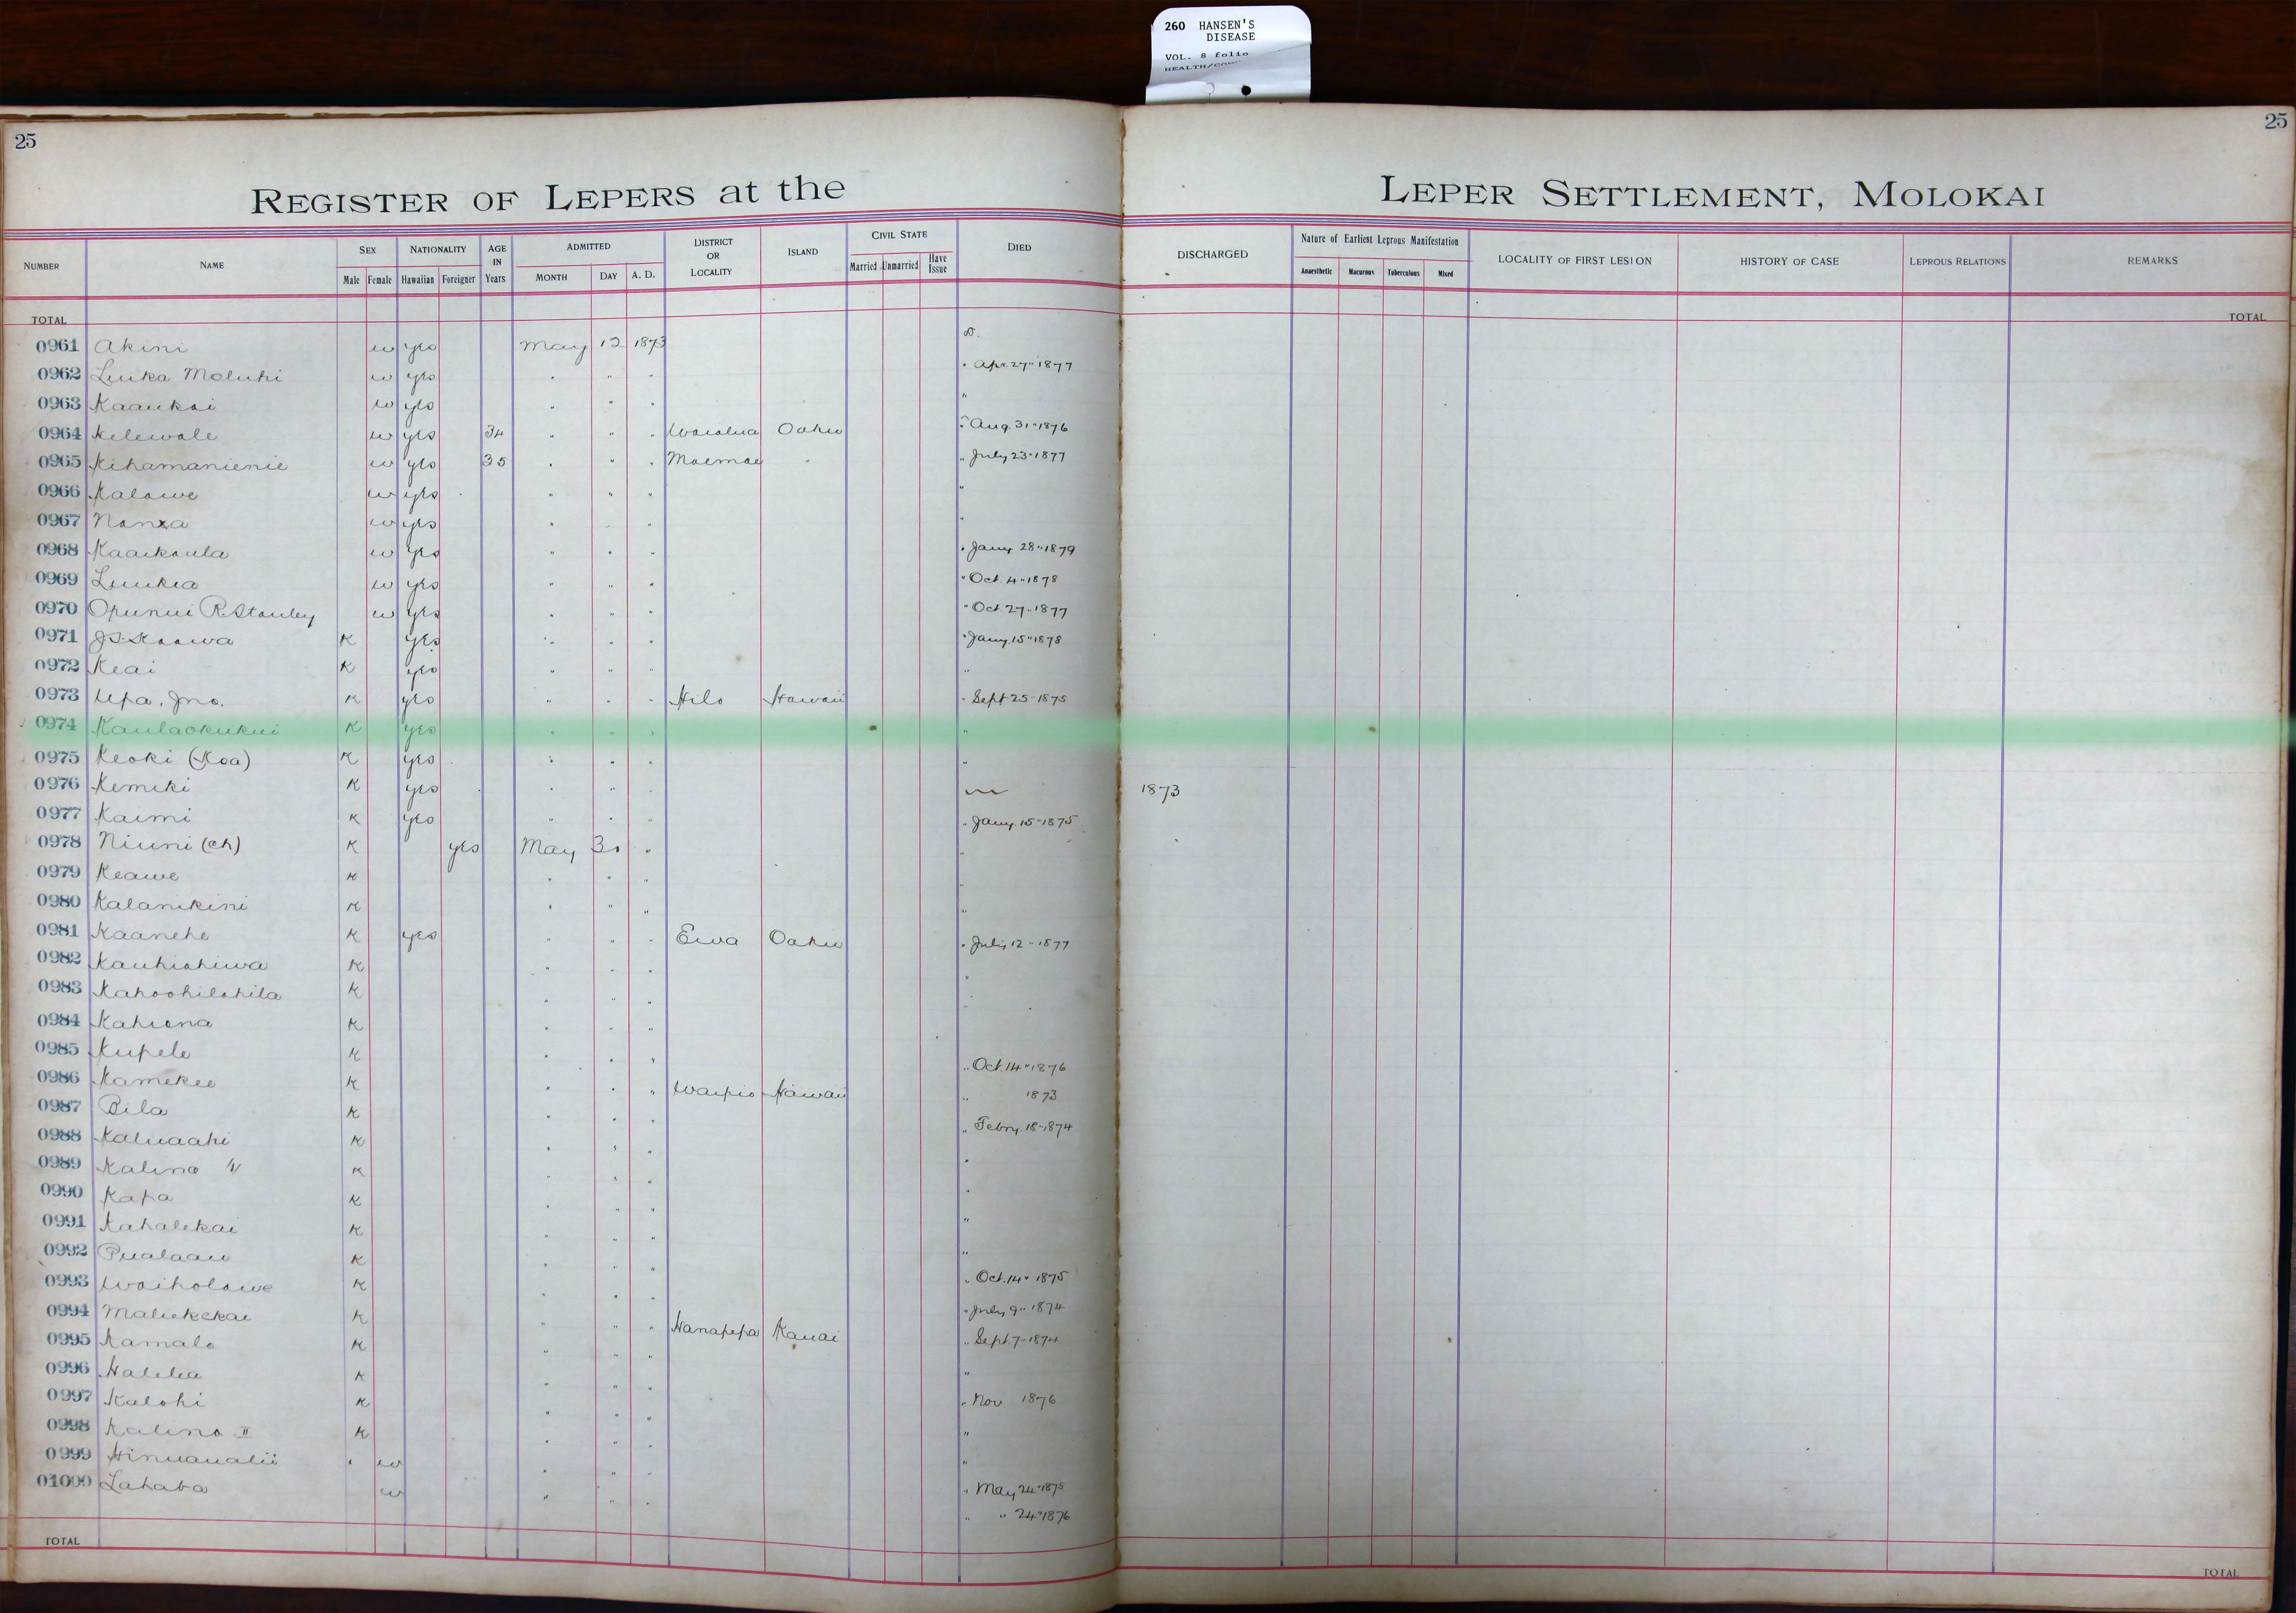 260 HANSEN'S
DISEASE
VOL. 8 folio
25
25
REGISTER OF LEPERS at the LEPER SETTLEMENT, MOLOKAI
NUMBER NAME SEX Male Female NATIONALITY Hawaiian Foreigner AGE IN Years ADMITTED MONTH DAY A. D. DISTRICT OR LOCALITY ISLAND CIVIL STATE Married Unmarried Have Issue DIED DISCHARGED Nature of Earliest Leprous Manifestation Anaesthetic Macurous Tuberculous Mixed LOCALITY OF FIRST LESION HISTORY OF CASE LEPROUS RELATIONS REMARKS
TOTAL TOTAL
0961 Akini w yes May 12 1873 D.
0962 Luika Moluhi w yes " " " " Apr. 27" 1877
0963 Kaaukai w yes " " " "
0964 Kelewale w yes 34 " " " Waialua Oahu " Aug. 31" 1876
0965 Kihamanienie w yes 35 " " " Moemoe " " July 23" 1877
0966 Kalawe w yes " " " "
0967 w yes " " " "
0968 Kaaikaula w yes " " " " Jany 28" 1879
0969 Luukia w yes " " " " Oct. 4" 1878
0970 Opunui R. Stanley w yes " " " " Oct 27" 1877
0971 J.S. Kaawa K yes " " " " Jany. 15" 1878
0972 Keai K yes " " " "
0973 Upa. Jno. K yes " " " Hilo Hawaii " Sept 25" 1875
0974 Kaulaokukui K yes " " " "
0975 Keoki (Koa) K yes " " " "
0976 Kemiki K yes " " " 1873
0977 Kaimi K yes " " " " Jany. 15" 1875
0978 Niuni (ch) K yes May 30 " "
0979 Keawe K " " " "
0980 Kalanikini K " " " "
0981 Kaanehe K yes " " " Ewa Oahu " July 12" 1877
0982 Kauhiohiwa K " " " "
0983 Kahoohilahila K " " " "
0984 Kahiona K " " "
0985 Kupele K " " " " Oct. 14" 1876
0986 Kamekeo K " " " Waipio Hawaii " 1873
0987 Bila K " " " " Febry. 18" 1874
0988 Kaluaahi K " " " "
0989 Kalino K " " " "
0990 Kapa K " " " "
0991 Kahalekai K " " " "
0992 Pualaau K " " " " Oct. 14" 1875
0993 Waiholowe K " " " " July 9" 1874
0994 Maliekekai K " " " Hanapepa Kauai " Sept. 7" 1874
0995 Kamalo K " " " "
0996 Halelea K " " " " Nov. 1876
0997 Kalohi K " " " "
0998 Kalino II K " " " "
0999 Hinuaualii w " " " " May 24" 1875
01000 Lahaba w " " " " " 24" 1876
TOTAL TOTAL